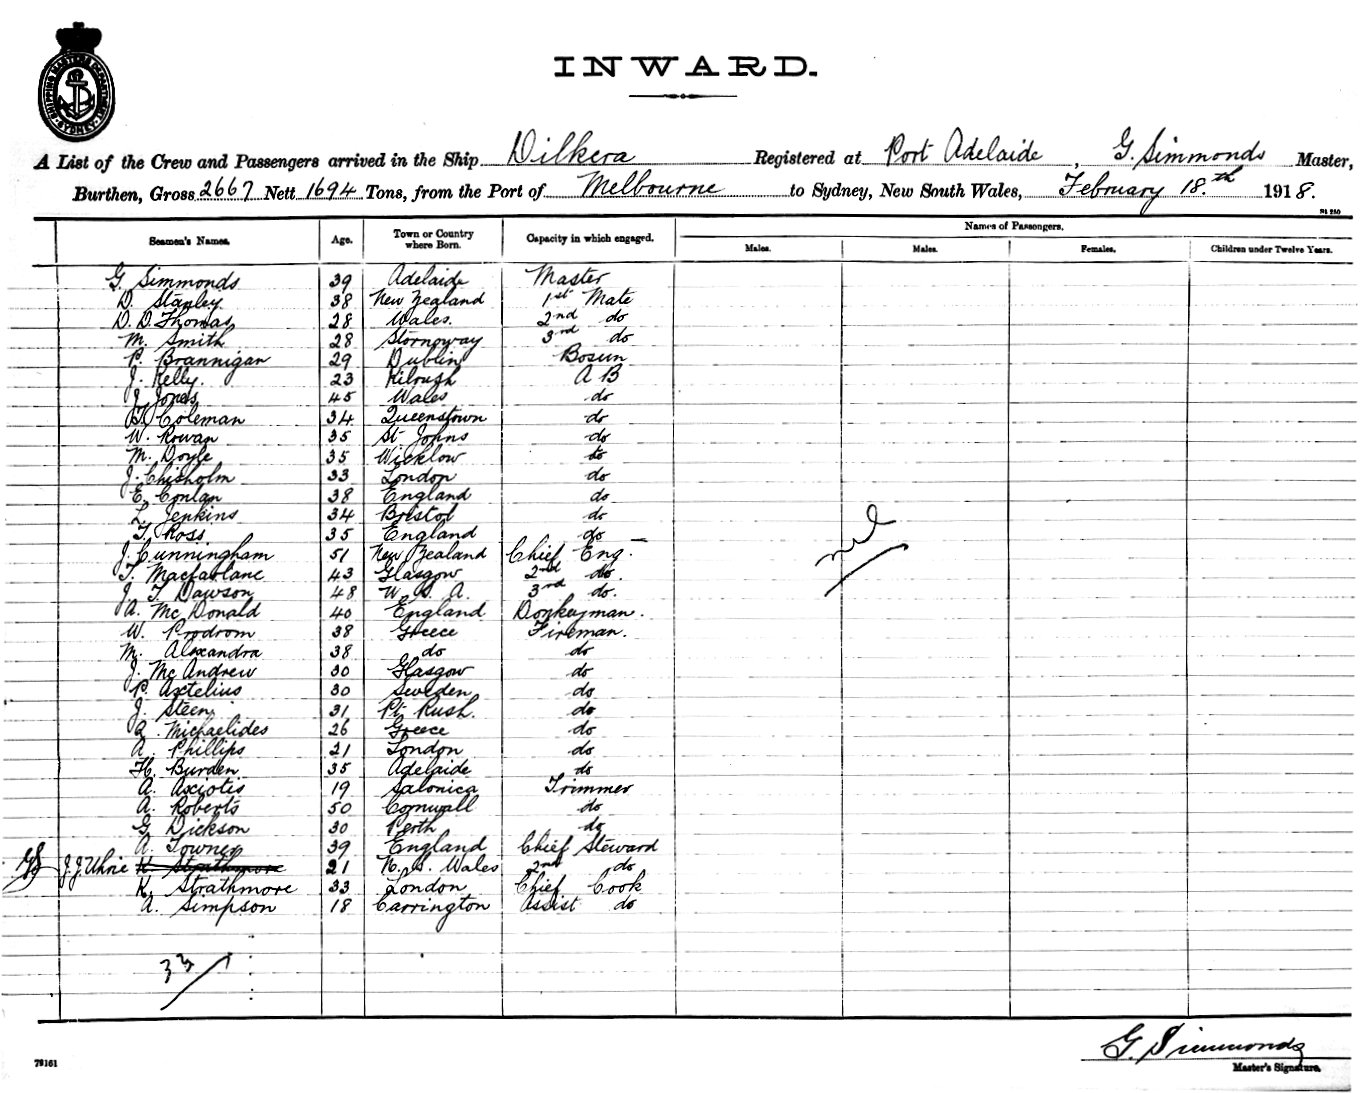 SHIPPING MASTER'S DEPARTMENT SYDNEY
INWARD.
A List of the Crew and Passengers arrived in the Ship Dilkera Registered at Port Adelaide, G. Simmonds Master,
Burthen, Gross 2667 Nett 1694 Tons, from the Port of Melbourne to Sydney, New South Wales, February 18.th 1918.
Seamen's Names. Age. Town or Country where Born. Capacity in which engaged. Names of Passengers.
Males. Males. Females. Children under Twelve Years.
G. Simmonds 39 Adelaide Master
D. Stanley 38 New Zealand 1st Mate
D. D. Thomas 28 Wales. 2nd do
M. Smith 28 Stornoway 3rd do
P. Brannigan 29 Dublin Bosun
J. Kelly. 23 Kilrush A B
J. Jones 45 Wales do
Coleman 34 Queenstown do
W. Rowan 35 St Johns do
M. Doyle 35 Wicklow do
J. Chisholm 33 London do
E. Conlan 38 England do
L. Jenkins 34 Bristol do
T. Ross 35 England do
J. Cunningham 51 New Zealand Chief Eng.
T. Macfarlane 43 Glasgow 2nd do.
J. T. Dawson 48 U. S. A. 3rd do.
A. McDonald 40 England Donkeyman.
W. Prodrom 38 Greece Fireman.
M. Alexandra 38 do do
J. McAndrew 30 Glasgow do
P. Axtelius 30 Sweden do
J. Steen 31 Pt. Rush. do
A. Michaelides 26 Greece do
A. Phillips 21 London do
H. Burden 35 Adelaide do
A. Axiotis 19 Salonica Trimmer
A. Roberts 50 Cornwall do
G. Dickson 30 Perth do
A. Towner 39 England Chief Steward
GS J. J. Uhrie K. Strathmore 21 N. S. Wales 2nd do
K. Strathmore 33 London Chief Cook
A. Simpson 18 Carrington Assist do
nil
33
G. Simmonds
Master's Signature.
79161